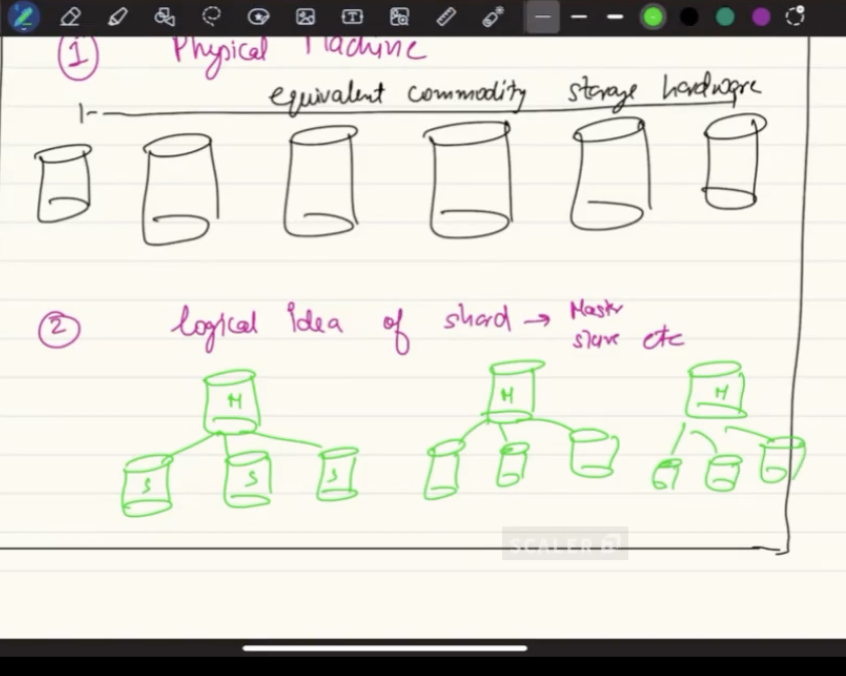 1 Physical Machine
equivalent commodity storage hardware
2 logical idea of shard → Master
slave etc
M M M
S S S
SCALER